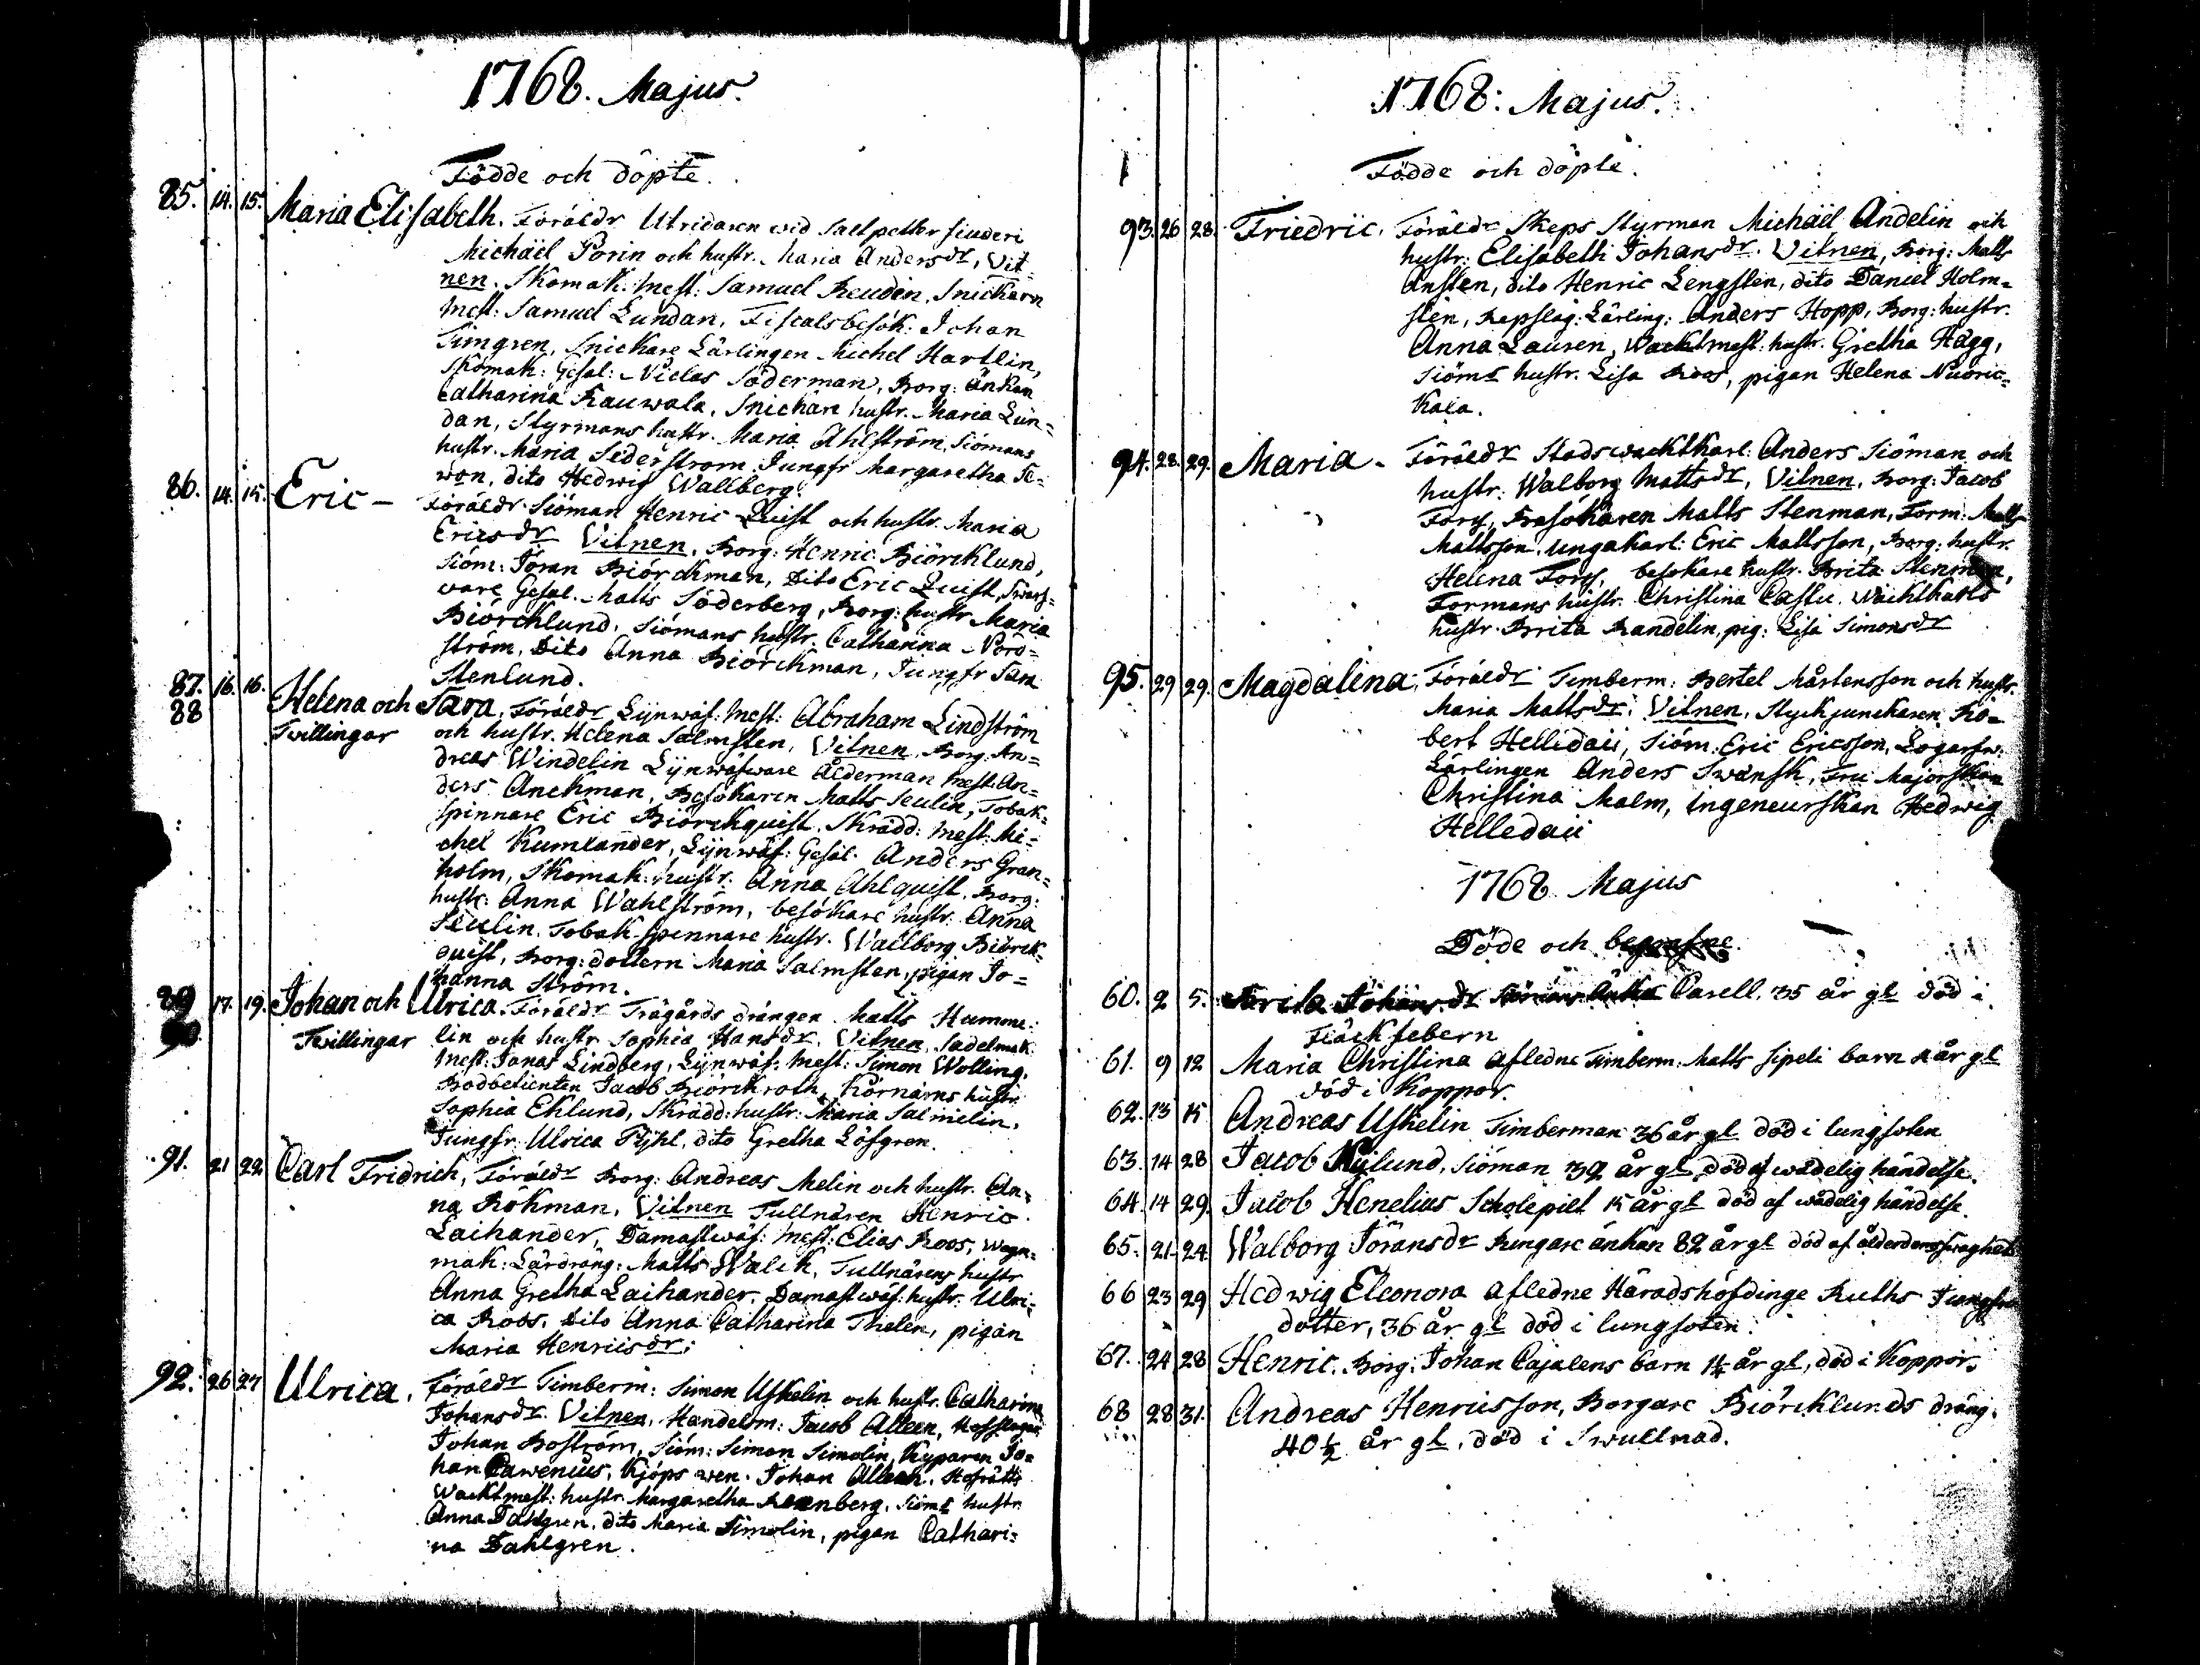 1768. Majus.
Födde och döpte.
85. 14. 15. Maria Elisabeth. Föräldr Utridaren wid Saltpetter siuderi
Michäel Porin och hustr. Maria Andersdr, Vit=
nen. Skomak: Mest: Samuel Reuden, Snickarn
Mest: Samuel Lundan, Fiscalsbesök. Johan
Timgren, Snickare Lärlingen Michel Hartlin,
Skomak: Gesäl: Niclas Söderman, Borg: Änkan
Catharina Rauwala, Snickare hustr. Maria Lun=
dan, Styrmans hustr. Maria Ahlström, Siömans
hustr. Maria Sederstrom Jungfr Margaretha Te=
won, dito Hedwig Wallberg.
86. 14. 15. Eric - Föräldr. Siöman Henric Quist och hustr. Maria
Ericsdr Vitnen. Borg: Henric Biörcklund,
Siöm: Jöran Biörckman, Dito Eric Quist, Swarf=
ware Gesäl. Matts Söderberg, Borg: hustr Maria
Biörcklund. Siömans hustr. Catharina Norö=
ström, Dito Anna Biörckman, Jungfr Sara
Stenlund.
87. 88 16. 16. Helena och Sara. Föräldr Lijnwäf: Mest: Abraham Lindström
Tvillingar och hustr. Helena Salmsten, Vitnen. Borg. An=
dreas Windelin Lijnwäfware Ålderman Mest: An=
ders Anckman, Besökaren Matts Seulin, Tobak=
spinnare Eric Biörckquist. Skrädd: Mest: Mi=
chel Kumlander, Lijnwäf: Gesäl. Anders Gran=
holm, Skomak: hustr. Anna Ahlquist, Borg:
hustr: Anna Wahlström, besökare hustr. Anna
Seulin. Tobak spinnare hustr. Wallborg Biörck=
quist, Borg: dottern Maria Salmsten, pigan Jo=
hanna Ström.
89 90. 17. 19. Johan och Ulrica. Föräldr Trägårds drängen Matts Humme:
Tvillingar lin och hustr Sophia Hansdr. Vitnen, Sadelmak
Mest: Jonas Lindberg, Lijnwäf: Mest: Simon Wolling,
Bodbetienten Jacob Biörckroth, Körnärns hustr.
Sophia Eklund, Skrädd: hustr: Maria Salmelin.
Jungfr. Ulrica Pijhl, dito Gretha Löfgren.
91. 21 22 Carl Fridrich, Föräldr Borg: Andreas Melin och hustr. An=
na Rökman, Vitnen Tullnären Henric
Laihander, Damastwäf: Mest: Elias Roos, Wagn=
mak: Lärdräng: Matts Walck. Tullnärens hustr
Anna Gretha Laihander. Damastwäf: hustr. Ulri=
ca Roos. Dito Anna Catharina Thelen, pigan
Maria Henricsdr.
92. 26 27 Ulrica. Föräldr Timberm: Simon Uskelin och hustr. Catharina
Johansdr. Vitnen, Handelsm: Jacob Alleen,
Johan Boström, Siöm: Simon Simolin, Kyparen Jo=
han Cawenius, Kjöps wen. Johan Alleen. Hofrätts
Wacktmest: hustr. Margaretha Rosenberg. Siöms hustr
Anna Dahlgren, dito Maria Simolin, pigan Cathari=
na Dahlgren.
1768: Majus.
Födde och döpte.
93. 26 28. Friedric. Föräldr Skeps Styrman Michäel Andelin och
hustr: Elisabeth Johansdr. Vitnen, Borg: Matts
Ansten, dito Henric Lengsten, dito Daniel Holm=
sten, Repslag: Lärling: Anders Hopp, Borg: hustr.
Anna Lauren, Wacktmest: hustr. Gretha Hägg,
Siöms hustr. Lisa Roos, pigan Helena Nuoric=
kala.
94. 28. 29. Maria - Föräldr Stadswacktkarl: Anders Siöman och
hustr: Walborg Mattsdr, Vitnen, Borg: Jacob
Forss, Besökaren Matts Stenman, Form: Matts
Mattsson, ungakarl: Eric Mattsson, Borg: hustr.
Helena Forss, besökare hustr. Brita Stenman,
Formans hustr. Christina Castu. Wacktkarls
hustr. Brita Randelin, pig: Lisa Simonsdr
95. 29 29. Magdalena. Föräldr Timberm: Bertel Mårtensson och hustr.
Maria Mattsdr. Vitnen, Styckjunckaren Ro=
bert Hellidaii, Siöm: Eric Ericsson, Logarfw:
Lärlingen Anders Swänsk, Fru Majorskan
Christina Malm, Ingeneurskan Hedwig
Helledaii
1768 Majus
Döde och begrafne.
60. 2 5. Brita Johansdr Siömans Änka Carell. 35 år gl död i
Fläckfebern
61. 9 12 Maria Christina afledne Timberm: Matts Sipeli barn år gl
död i Koppor.
62. 13 15 Andreas Uskelin Timberman 36 år gl död i lungsoten
63. 14 28 Jacob Nylund, Siöman 32 år gl död af wådelig händelse.
64. 14 29. Jacob Henelius Scholepilt 15 år gl död af wådelig händelse.
65. 21 24 Walborg Jöransdr Rungare änkan 82 år gl död af ålderdomsswaghet
66 23 29 Hedwig Eleonora afledne Häradshöfdinge Ruths Jungfru
dotter, 36 år gl död i lungsoten.
67. 24 28 Henric. Borg: Johan Cajalens barn 1¼ år gl, död i Koppor.
68 28 31. Andreas Henricsson, Borgare Biörcklunds dräng.
40½ år gl, död i Swullnad.